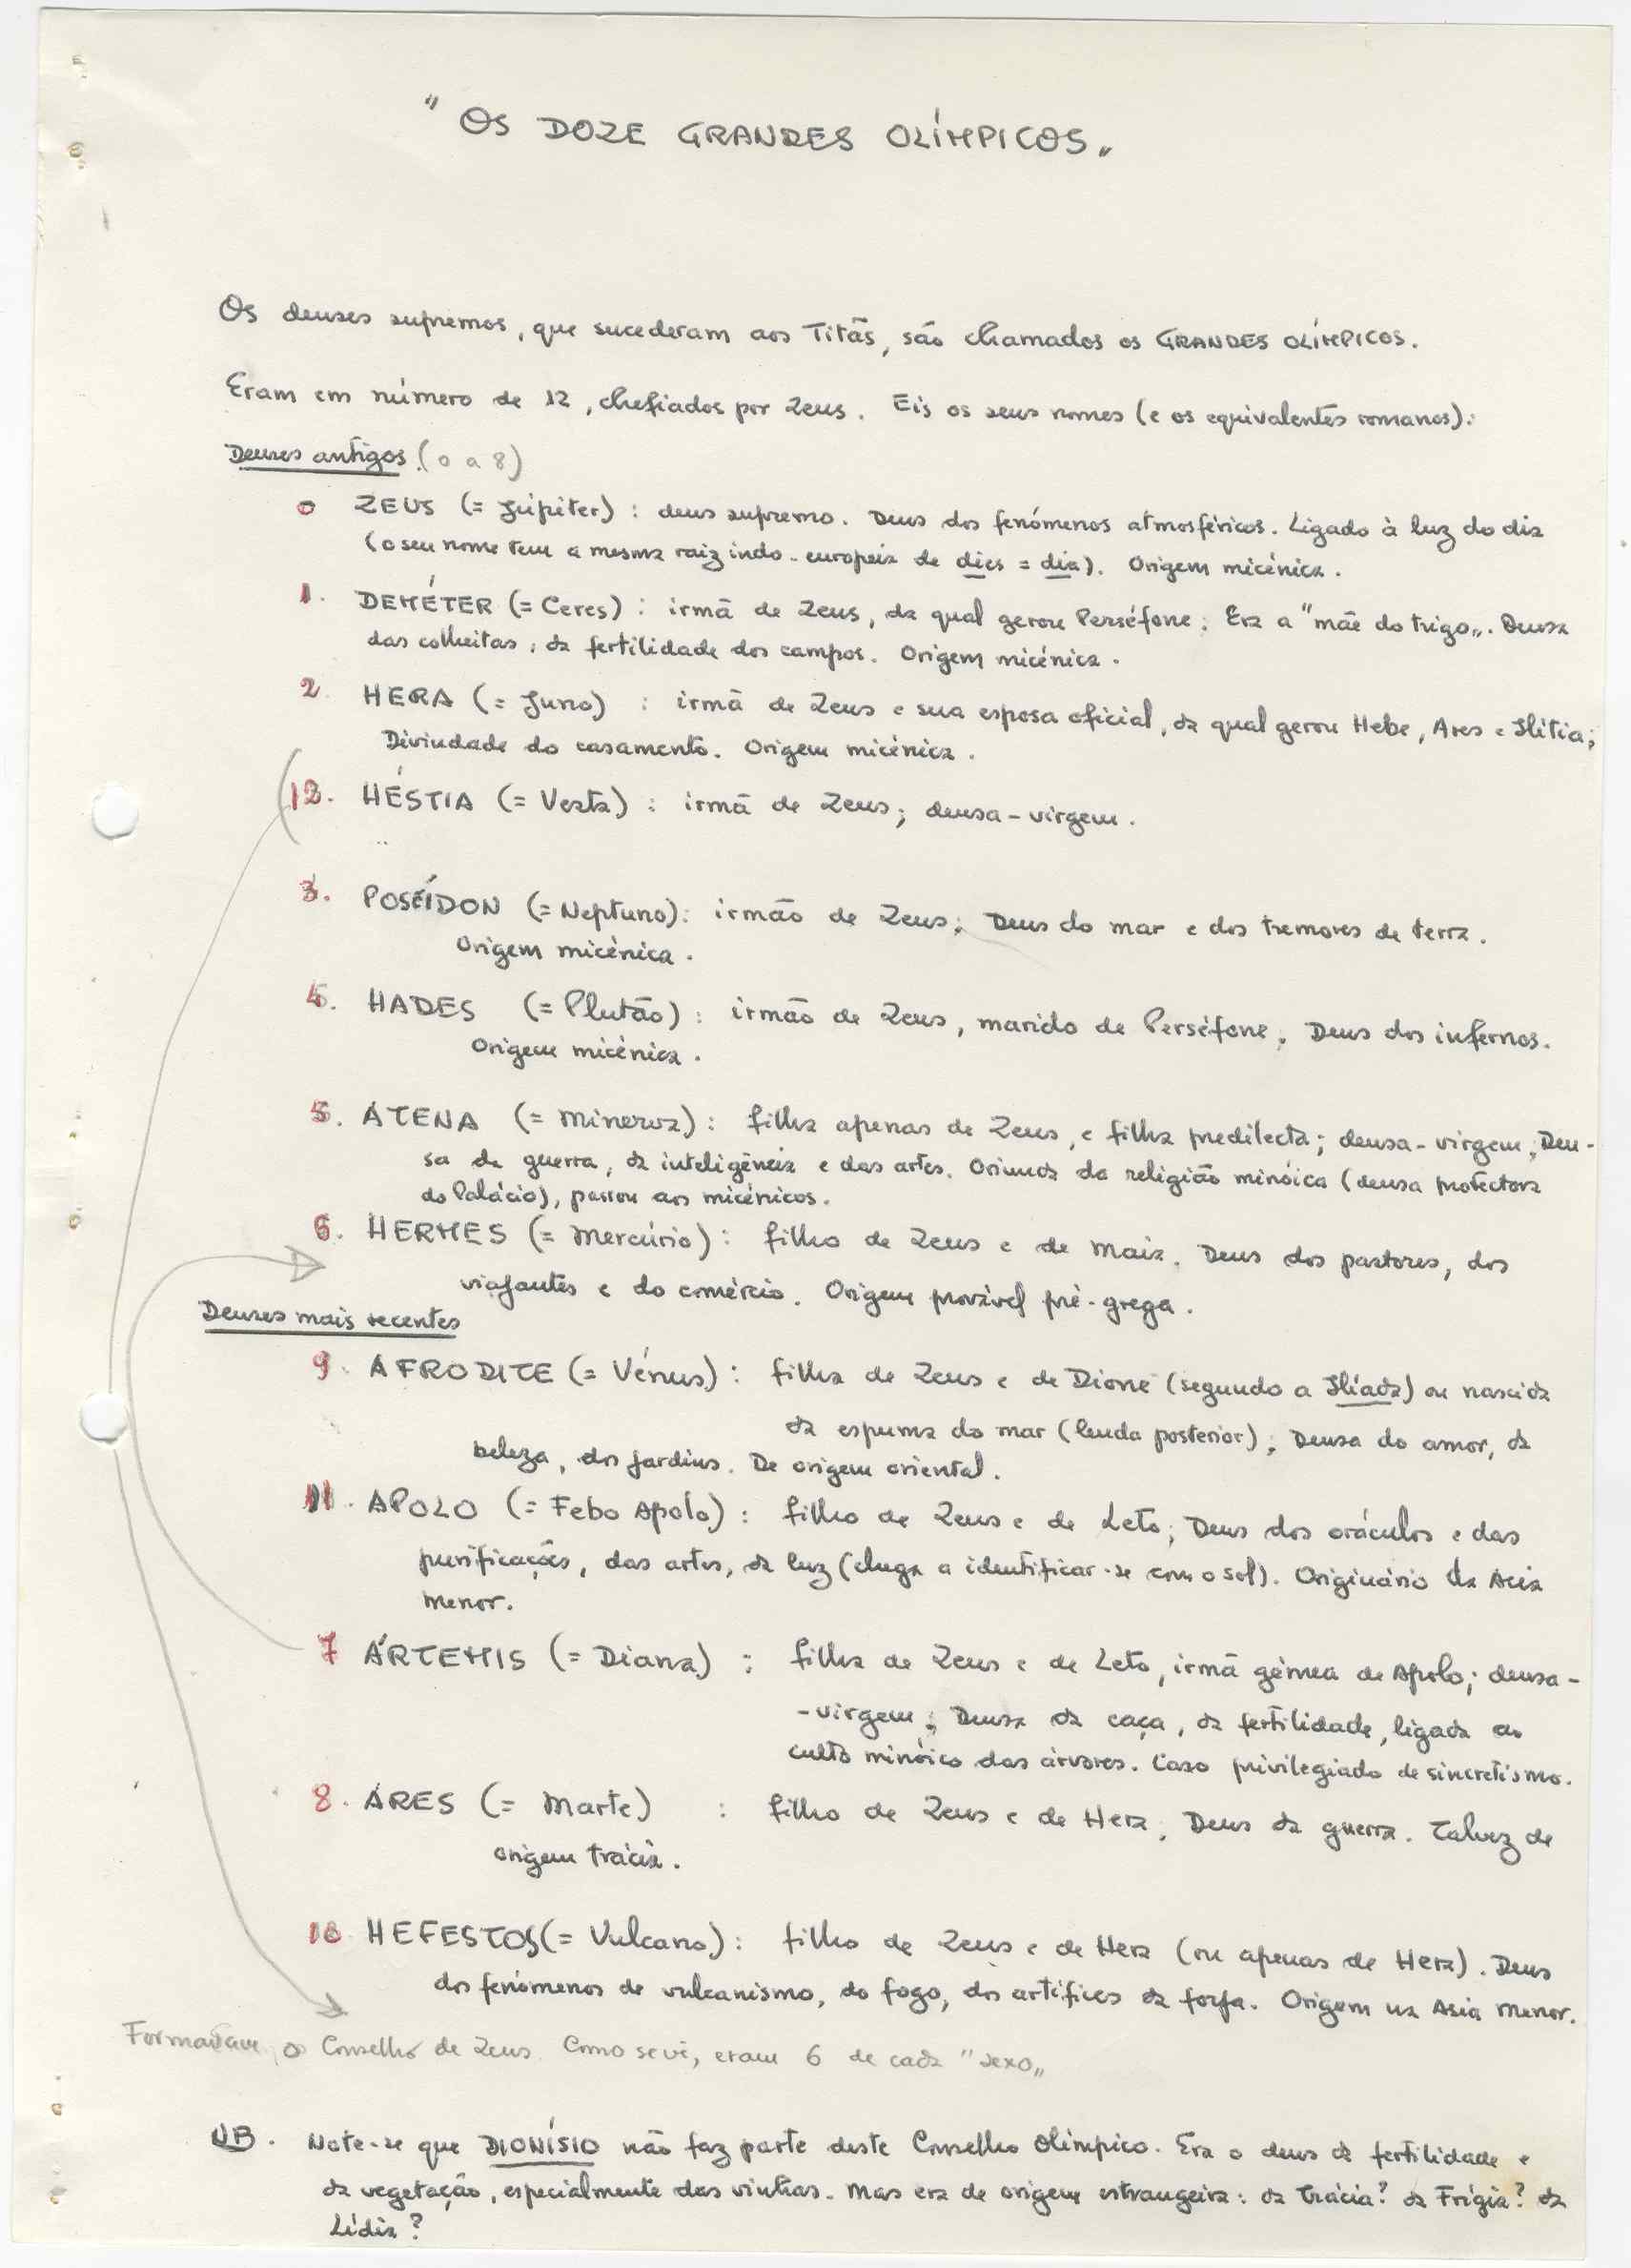 "OS DOZE GRANDES OLÍMPICOS„
Os deuses supremos, que sucederam aos Titãs, são chamados os GRANDES OLÍMPICOS.
Eram em número de 12, chefiados por Zeus. Eis os seus nomes (e os equivalentes romanos):
Deuses antigos (0 a 8)
0 ZEUS (= Júpiter) : deus supremo. Deus dos fenómenos atmosféricos. Ligado à luz do dia
(o seu nome tem a mesma raiz indo-europeia de dies = dia). Origem micénica.
1. DEMÉTER (= Ceres) : irmã de Zeus, da qual gerou Perséfone; Era a "mãe do trigo„. Deusa
das colheitas, da fertilidade dos campos. Origem micénica.
2. HERA (= Juno) : irmã de Zeus e sua esposa oficial, da qual gerou Hebe, Ares e Ilítia;
Divindade do casamento. Origem micénica.
(12. HÉSTIA (= Vesta) : irmã de Zeus; deusa-virgem.
3. POSÉÍDON (= Neptuno): irmão de Zeus; Deus do mar e dos tremores de terra.
Origem micénica.
4. HADES (= Plutão) : irmão de Zeus, marido de Perséfone; Deus dos infernos.
Origem micénica.
5. ATENA (= Minerva) : filha apenas de Zeus, e filha predilecta; deusa-virgem; Deu-
sa da guerra, da inteligência e das artes. Oriunda da religião minóica (deusa protectora
do Palácio), passou aos micénicos.
6. HERMES (= Mercúrio) : filho de Zeus e de Maia. Deus dos pastores, dos
viajantes e do comércio. Origem provável pré-grega.
Deuses mais recentes
9. AFRODITE (= Vénus) : filha de Zeus e de Dione (segundo a Ilíada) ou nascida
da espuma do mar (lenda posterior); Deusa do amor, da
beleza, dos jardins. De origem oriental.
11. APOLO (= Febo Apolo) : filho de Zeus e de Leto; Deus dos oráculos e das
purificações, das artes, da luz (chega a identificar-se com o sol). Originário da Asia
Menor.
7 ÁRTEMIS (= Diana) : filha de Zeus e de Leto, irmã gémea de Apolo; deusa-
-virgem; Deusa da caça, da fertilidade, ligada ao
culto minóico das árvores. Caso privilegiado de sincretismo.
8. ARES (= Marte) : filho de Zeus e de Hera; Deus da guerra. Talvez de
origem trácia.
10 HEFESTOS (= Vulcano) : filho de Zeus e de Hera (ou apenas de Hera). Deus
dos fenómenos de vulcanismo, do fogo, dos artífices da forja. Origem na Asia Menor.
Formavam o Conselho de Zeus. Como se vê, eram 6 de cada "sexo„
NB. Note-se que DIONÍSIO não faz parte deste Conselho Olímpico. Era o deus da fertilidade e
da vegetação, especialmente das vinhas. Mas era de origem estrangeira: da Trácia? da Frígia? da
Lídia?